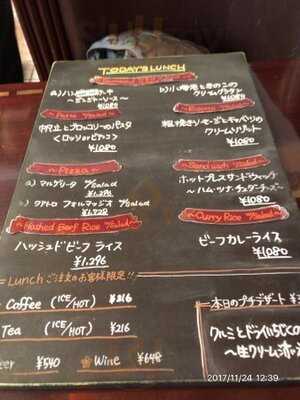 TODAY'S LUNCH
b) 小海老ときのこの
クリームグラタン
〜デミグラスソース〜
¥1080
Pasta %Salad
帆立とブロッコリーのパスタ
<ロッソorビアンコ>
¥1080
粗挽きソーセージとキャベツの
クリームリゾット
¥1080
Pizza
a) マルゲリータ %Salad
¥1,296
クアトロ フォルマッジオ %Salad
¥1,728
Sandwich %Salad
ホットプレスサンドウィッチ
〜ハム・ツナ・チェダーチーズ〜
¥1080
Hashed Beef Rice %Salad
ハッシュドビーフ ライス
¥1,296
Curry Rice %Salad
ビーフカレーライス
¥1080
Lunch ご注文のお客様限定!!
Coffee (ICE/HOT) ¥216
Tea (ICE/HOT) ¥216
¥540
Wine ¥648
本日のプチデザート
クルミとドライいちじくの
〜生クリーム添え
2017/11/24 12:39